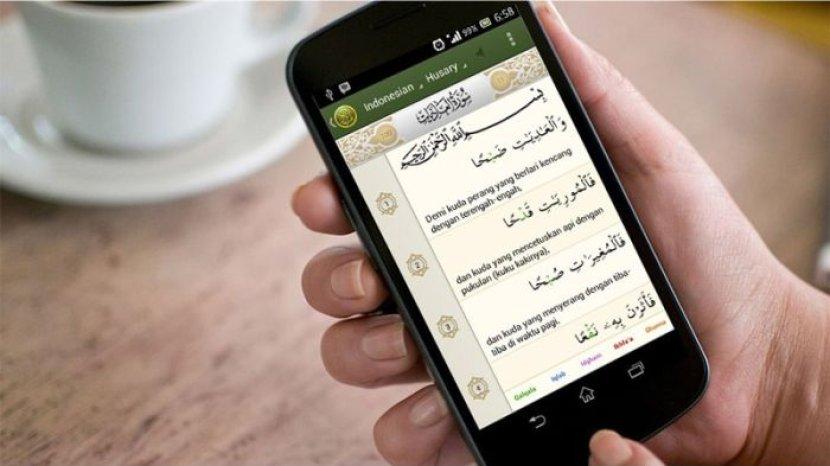 99% 6:58
Indonesian Husary
سورة العاديات
بسم الله الرحمن الرحيم
وَالْعَادِيَاتِ ضَبْحًا
1
Demi kuda perang yang berlari kencang
dengan terengah-engah,
فَالْمُورِيَاتِ قَدْحًا
2
dan kuda yang mencetuskan api dengan
pukulan (kuku kakinya),
فَالْمُغِيرَاتِ صُبْحًا
3
dan kuda yang menyerang dengan tiba-
tiba di waktu pagi,
فَأَثَرْنَ بِهِ نَقْعًا
4
Qalqala Iqlab Idgham Ikhfa'a Ghunna